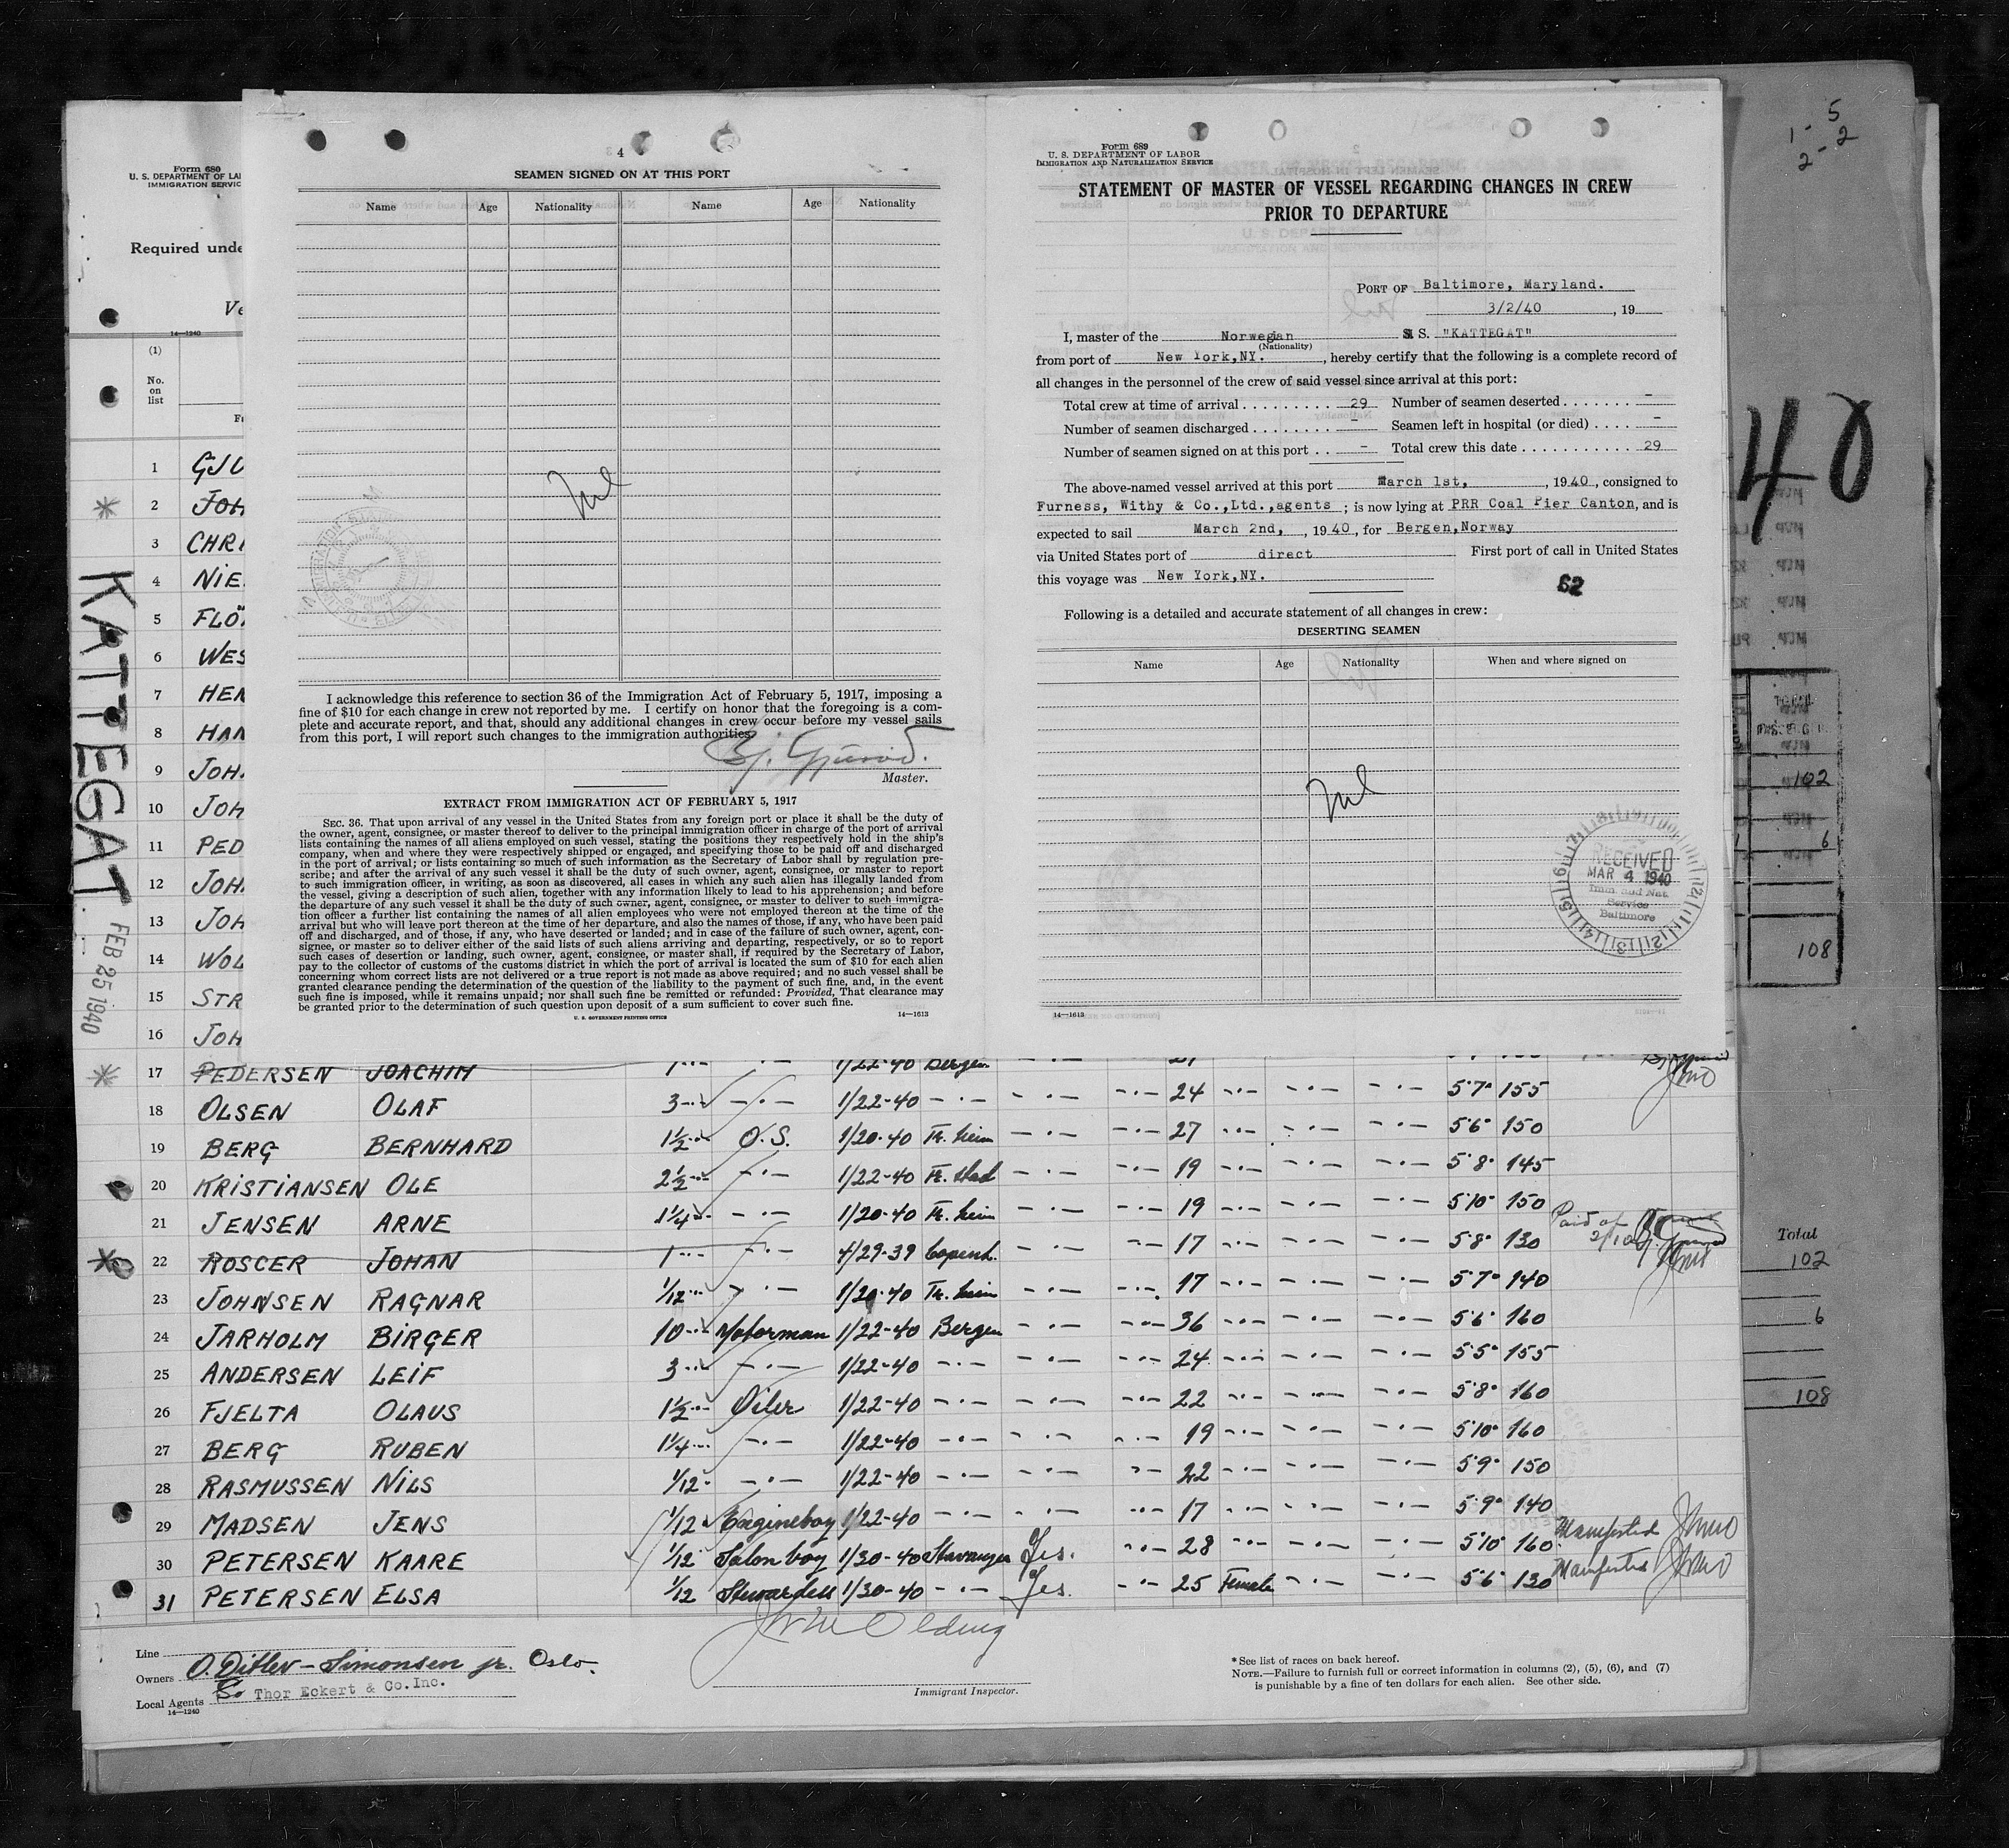 4
SEAMEN SIGNED ON AT THIS PORT
Name Age Nationality Name Age Nationality
Nil
I acknowledge this reference to section 36 of the Immigration Act of February 5, 1917, imposing a
fine of $10 for each change in crew not reported by me. I certify on honor that the foregoing is a com-
plete and accurate report, and that, should any additional changes in crew occur before my vessel sails
from this port, I will report such changes to the immigration authorities.
Master.
EXTRACT FROM IMMIGRATION ACT OF FEBRUARY 5, 1917
SEC. 36. That upon arrival of any vessel in the United States from any foreign port or place it shall be the duty of
the owner, agent, consignee, or master thereof to deliver to the principal immigration officer in charge of the port of arrival
lists containing the names of all aliens employed on such vessel, stating the positions they respectively hold in the ship's
company, when and where they were respectively shipped or engaged, and specifying those to be paid off and discharged
in the port of arrival; or lists containing so much of such information as the Secretary of Labor shall by regulation pre-
scribe; and after the arrival of any such vessel it shall be the duty of such owner, agent, consignee, or master to report
to such immigration officer, in writing, as soon as discovered, all cases in which any such alien has illegally landed from
the vessel, giving a description of such alien, together with any information likely to lead to his apprehension; and before
the departure of any such vessel it shall be the duty of such owner, agent, consignee, or master to deliver to such immigra-
tion officer a further list containing the names of all alien employees who were not employed thereon at the time of the
arrival but who will leave port thereon at the time of her departure, and also the names of those, if any, who have been paid
off and discharged, and of those, if any, who have deserted or landed; and in case of the failure of such owner, agent, con-
signee, or master so to deliver either of the said lists of such aliens arriving and departing, respectively, or so to report
such cases of desertion or landing, such owner, agent, consignee, or master shall, if required by the Secretary of Labor,
pay to the collector of customs of the customs district in which the port of arrival is located the sum of $10 for each alien
concerning whom correct lists are not delivered or a true report is not made as above required; and no such vessel shall be
granted clearance pending the determination of the question of the liability to the payment of such fine, and, in the event
such fine is imposed, while it remains unpaid; nor shall such fine be remitted or refunded: Provided, That clearance may
be granted prior to the determination of such question upon deposit of a sum sufficient to cover such fine.
U. S. GOVERNMENT PRINTING OFFICE 14—1613
Form 689
U. S. DEPARTMENT OF LABOR
IMMIGRATION AND NATURALIZATION SERVICE
STATEMENT OF MASTER OF VESSEL REGARDING CHANGES IN CREW
PRIOR TO DEPARTURE
PORT OF Baltimore, Maryland.
3/2/40, 19
I, master of the Norwegian S. "KATTEGAT"
(Nationality)
from port of New York,NY., hereby certify that the following is a complete record of
all changes in the personnel of the crew of said vessel since arrival at this port:
Total crew at time of arrival 29 Number of seamen deserted -
Number of seamen discharged - Seamen left in hospital (or died) -
Number of seamen signed on at this port - Total crew this date 29
The above-named vessel arrived at this port March 1st, , 1940, consigned to
Furness, Withy & Co.,Ltd.,agents ; is now lying at PRR Coal Pier Canton, and is
expected to sail March 2nd, , 1940, for Bergen,Norway
via United States port of direct First port of call in United States
this voyage was New York,NY.
62
Following is a detailed and accurate statement of all changes in crew:
DESERTING SEAMEN
Name Age Nationality When and where signed on
Nil
RECEIVED
MAR 4 1940
Imm. and Nat.
Service
Baltimore
14—1613
1 - 5
2 - 2
40
102
6
108
Total
102
6
108
Form 680
U. S. DEPARTMENT OF LA
IMMIGRATION SERVIC
Required unde
Ve
14—1240
(1)
No.
on
list
KATTEGAT
FEB 25 1940
1 GJU
2 JOH
3 CHRI
4 NIE
5 FLÖ
6 WES
7 HEN
8 HAN
9 JOH
10 JOH
11 PED
12 JOH
13 JOH
14 WOL
15 STR
16 JOH
17 PEDERSEN JOACHIM 1 1/22-40 Bergen
18 OLSEN OLAF 3 1/22-40 24 5'7" 155
19 BERG BERNHARD 1½ O.S. 1/20-40 Tr. heim 27 5'6" 150
20 KRISTIANSEN OLE 2½ 1/22-40 Fr. stad 19 5'8" 145
21 JENSEN ARNE 1¼ 1/20-40 Tr. heim 19 5'10" 150
22 ROSCER JOHAN 1 4/29-39 Copenh. 17 5'8" 130 Paid of
23 JOHNSEN RAGNAR 1/12 1/20-40 Tr. heim 17 5'7" 140
24 JARHOLM BIRGER 10 Motorman 1/22-40 Bergen 36 5'6" 160
25 ANDERSEN LEIF 3 1/22-40 24 5'5" 155
26 FJELTA OLAUS 1½ Oiler 1/22-40 22 5'8" 160
27 BERG RUBEN 1¼ 1/22-40 19 5'10" 160
28 RASMUSSEN NILS 1/12 1/22-40 22 5'9" 150
29 MADSEN JENS 1/12 Engineboy 1/22-40 17 5'9" 140
30 PETERSEN KAARE 1/12 Salon boy 1/30-40 Stavanger Yes. 28 5'10" 160 Manifested
31 PETERSEN ELSA 1/12 Stewardess 1/30-40 Yes. 25 Female 5'6" 130 Manifested
Line
Owners O. Ditlev-Simonsen jr. Oslo.
Local Agents Thor Eckert & Co.Inc.
14—1240
Immigrant Inspector.
* See list of races on back hereof.
NOTE.—Failure to furnish full or correct information in columns (2), (5), (6), and (7)
is punishable by a fine of ten dollars for each alien. See other side.